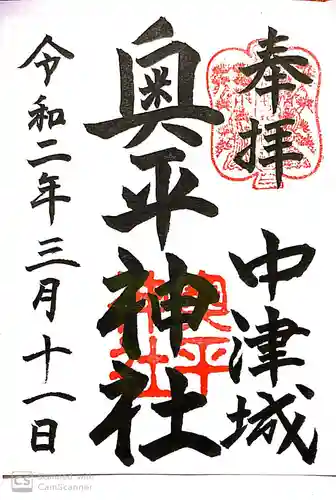 奉拝
中津城
奥平神社
奥平
神社
令和二年三月十一日
CS Scanned with
CamScanner